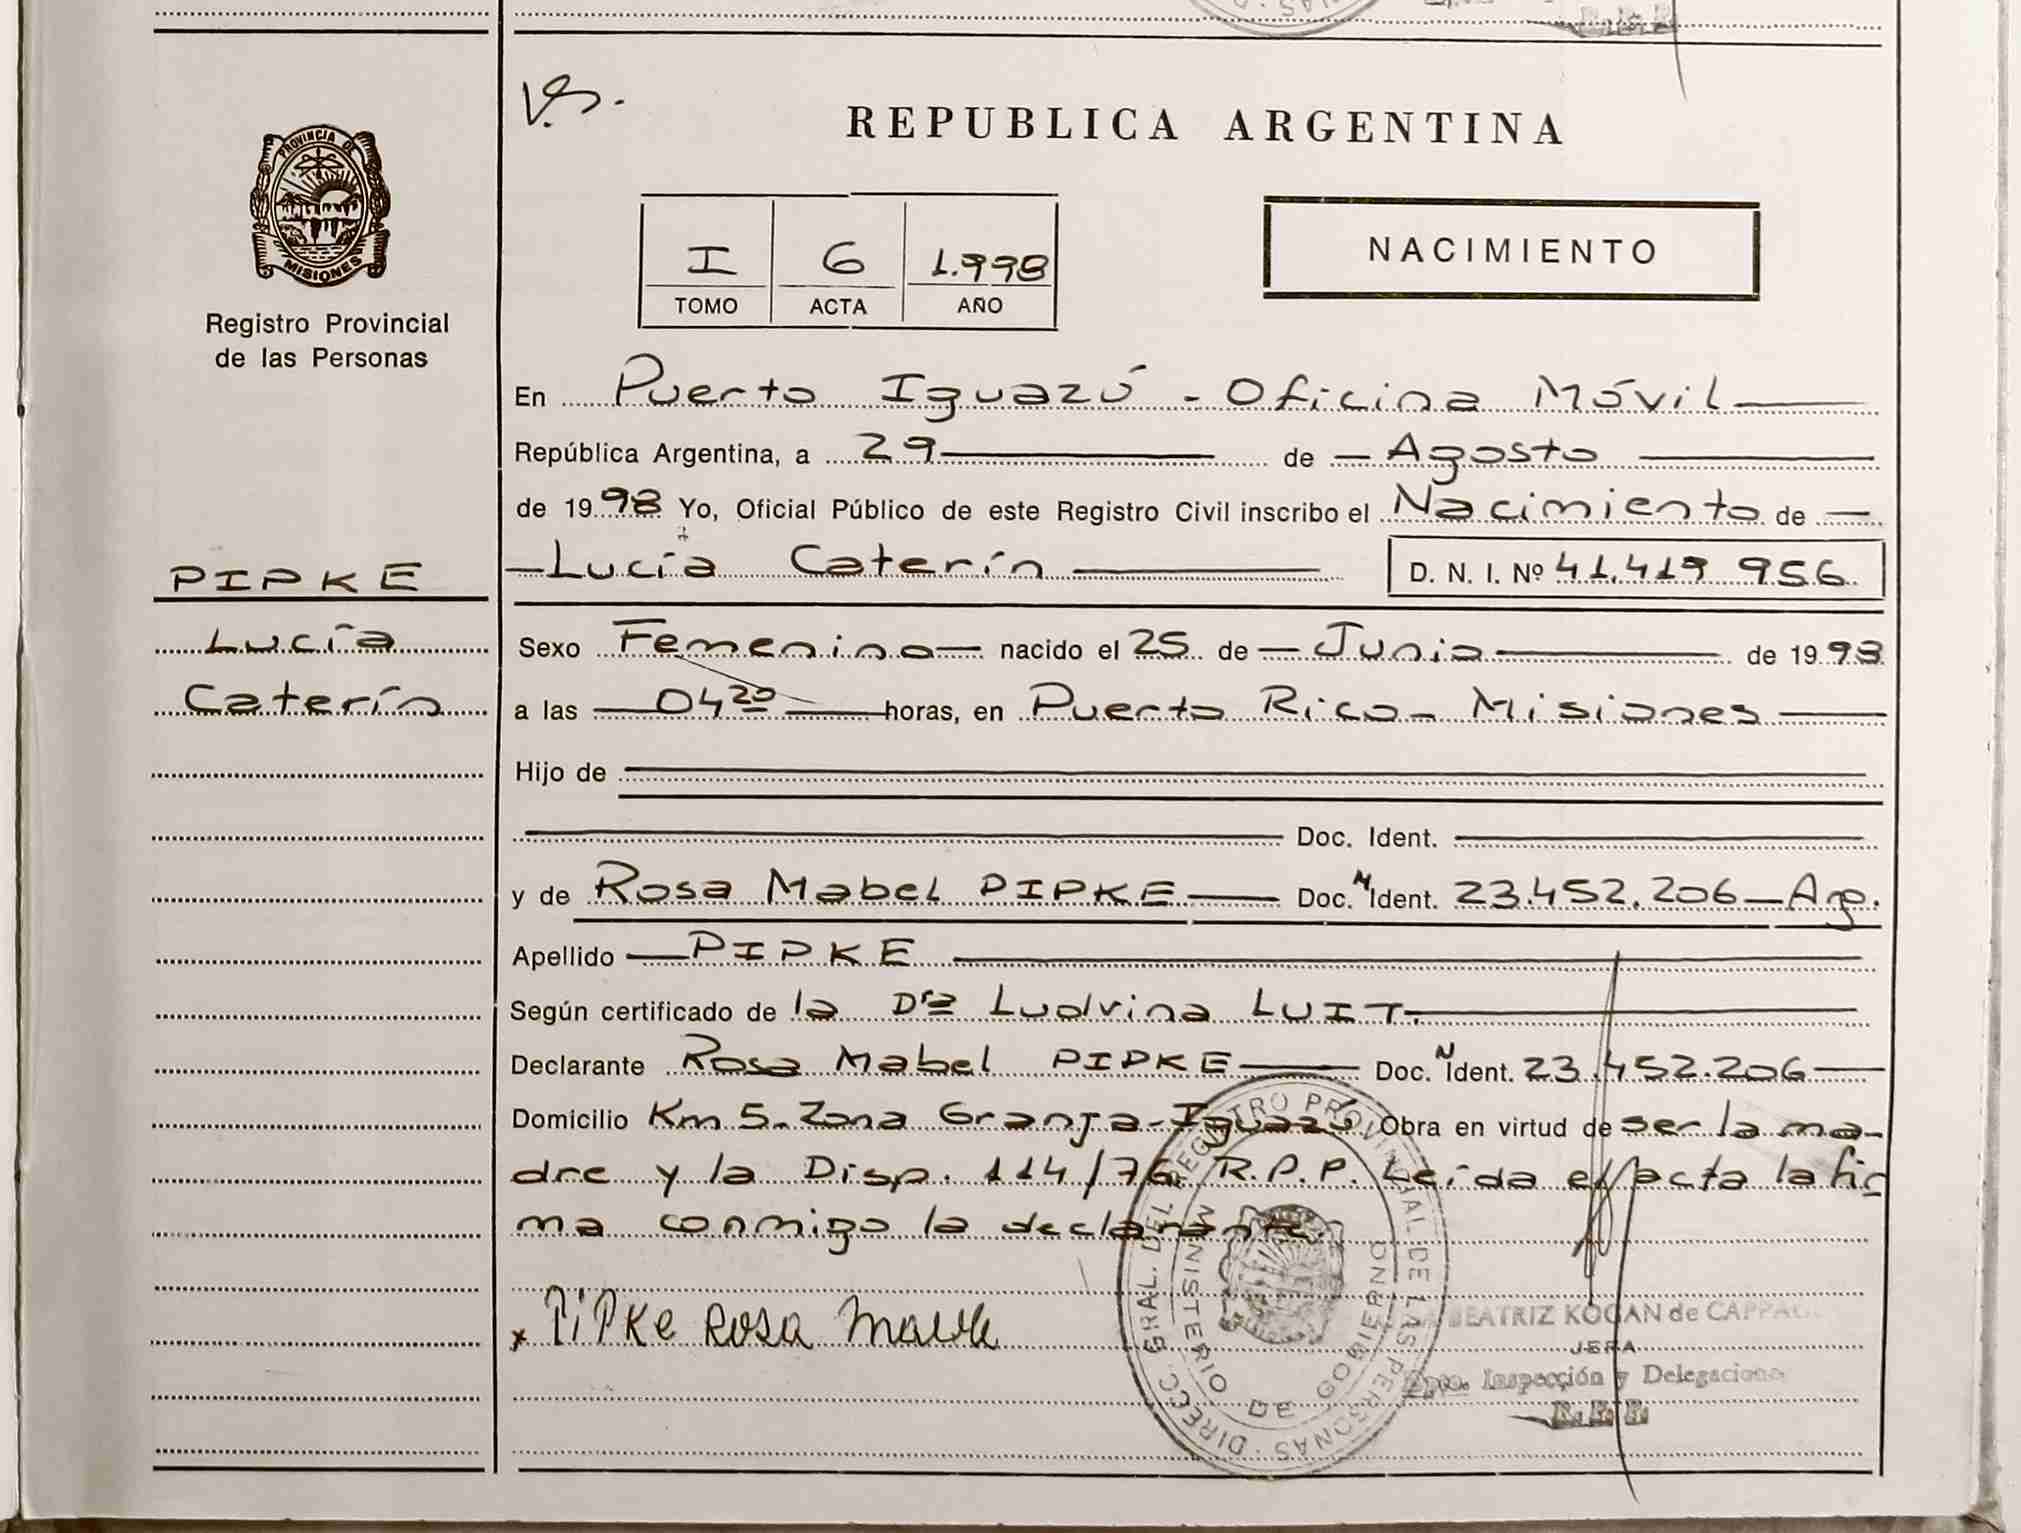 V.
REPUBLICA ARGENTINA
PROVINCIA DE
MISIONES
Registro Provincial
de las Personas
I 6 1.998
TOMO ACTA AÑO
NACIMIENTO
En Puerto Iguazú - Oficina Móvil
República Argentina, a 29 de Agosto
de 1998 Yo, Oficial Público de este Registro Civil inscribo el Nacimiento de
PIPKE
Lucía Caterín D. N. I. Nº 41.419 956
Lucía
Sexo Femenino nacido el 25 de Junio de 1998
Caterín
a las 04 20 horas, en Puerto Rico - Misiones
Hijo de
Doc. Ident.
y de Rosa Mabel PIPKE Doc. N Ident. 23.452.206 - Arg.
Apellido PIPKE
Según certificado de la Dra Ludvina LUIT.
Declarante Rosa Mabel PIPKE Doc. N Ident. 23.452.206
Domicilio Km 5. Zona Granja - Iguazú, Obra en virtud de ser la ma-
dre y la Disp. 114/76 R.P.P. Leída el acta la fir
ma conmigo la declarante.
x PiPKe Rosa
DIRECC. GRAL. DEL REGISTRO PROVINCIAL DE LAS PERSONAS
MINISTERIO DE GOBIERNO
BEATRIZ KOGAN de
JEFA
Dpto. Inspección y Delegacione
R. P. P.